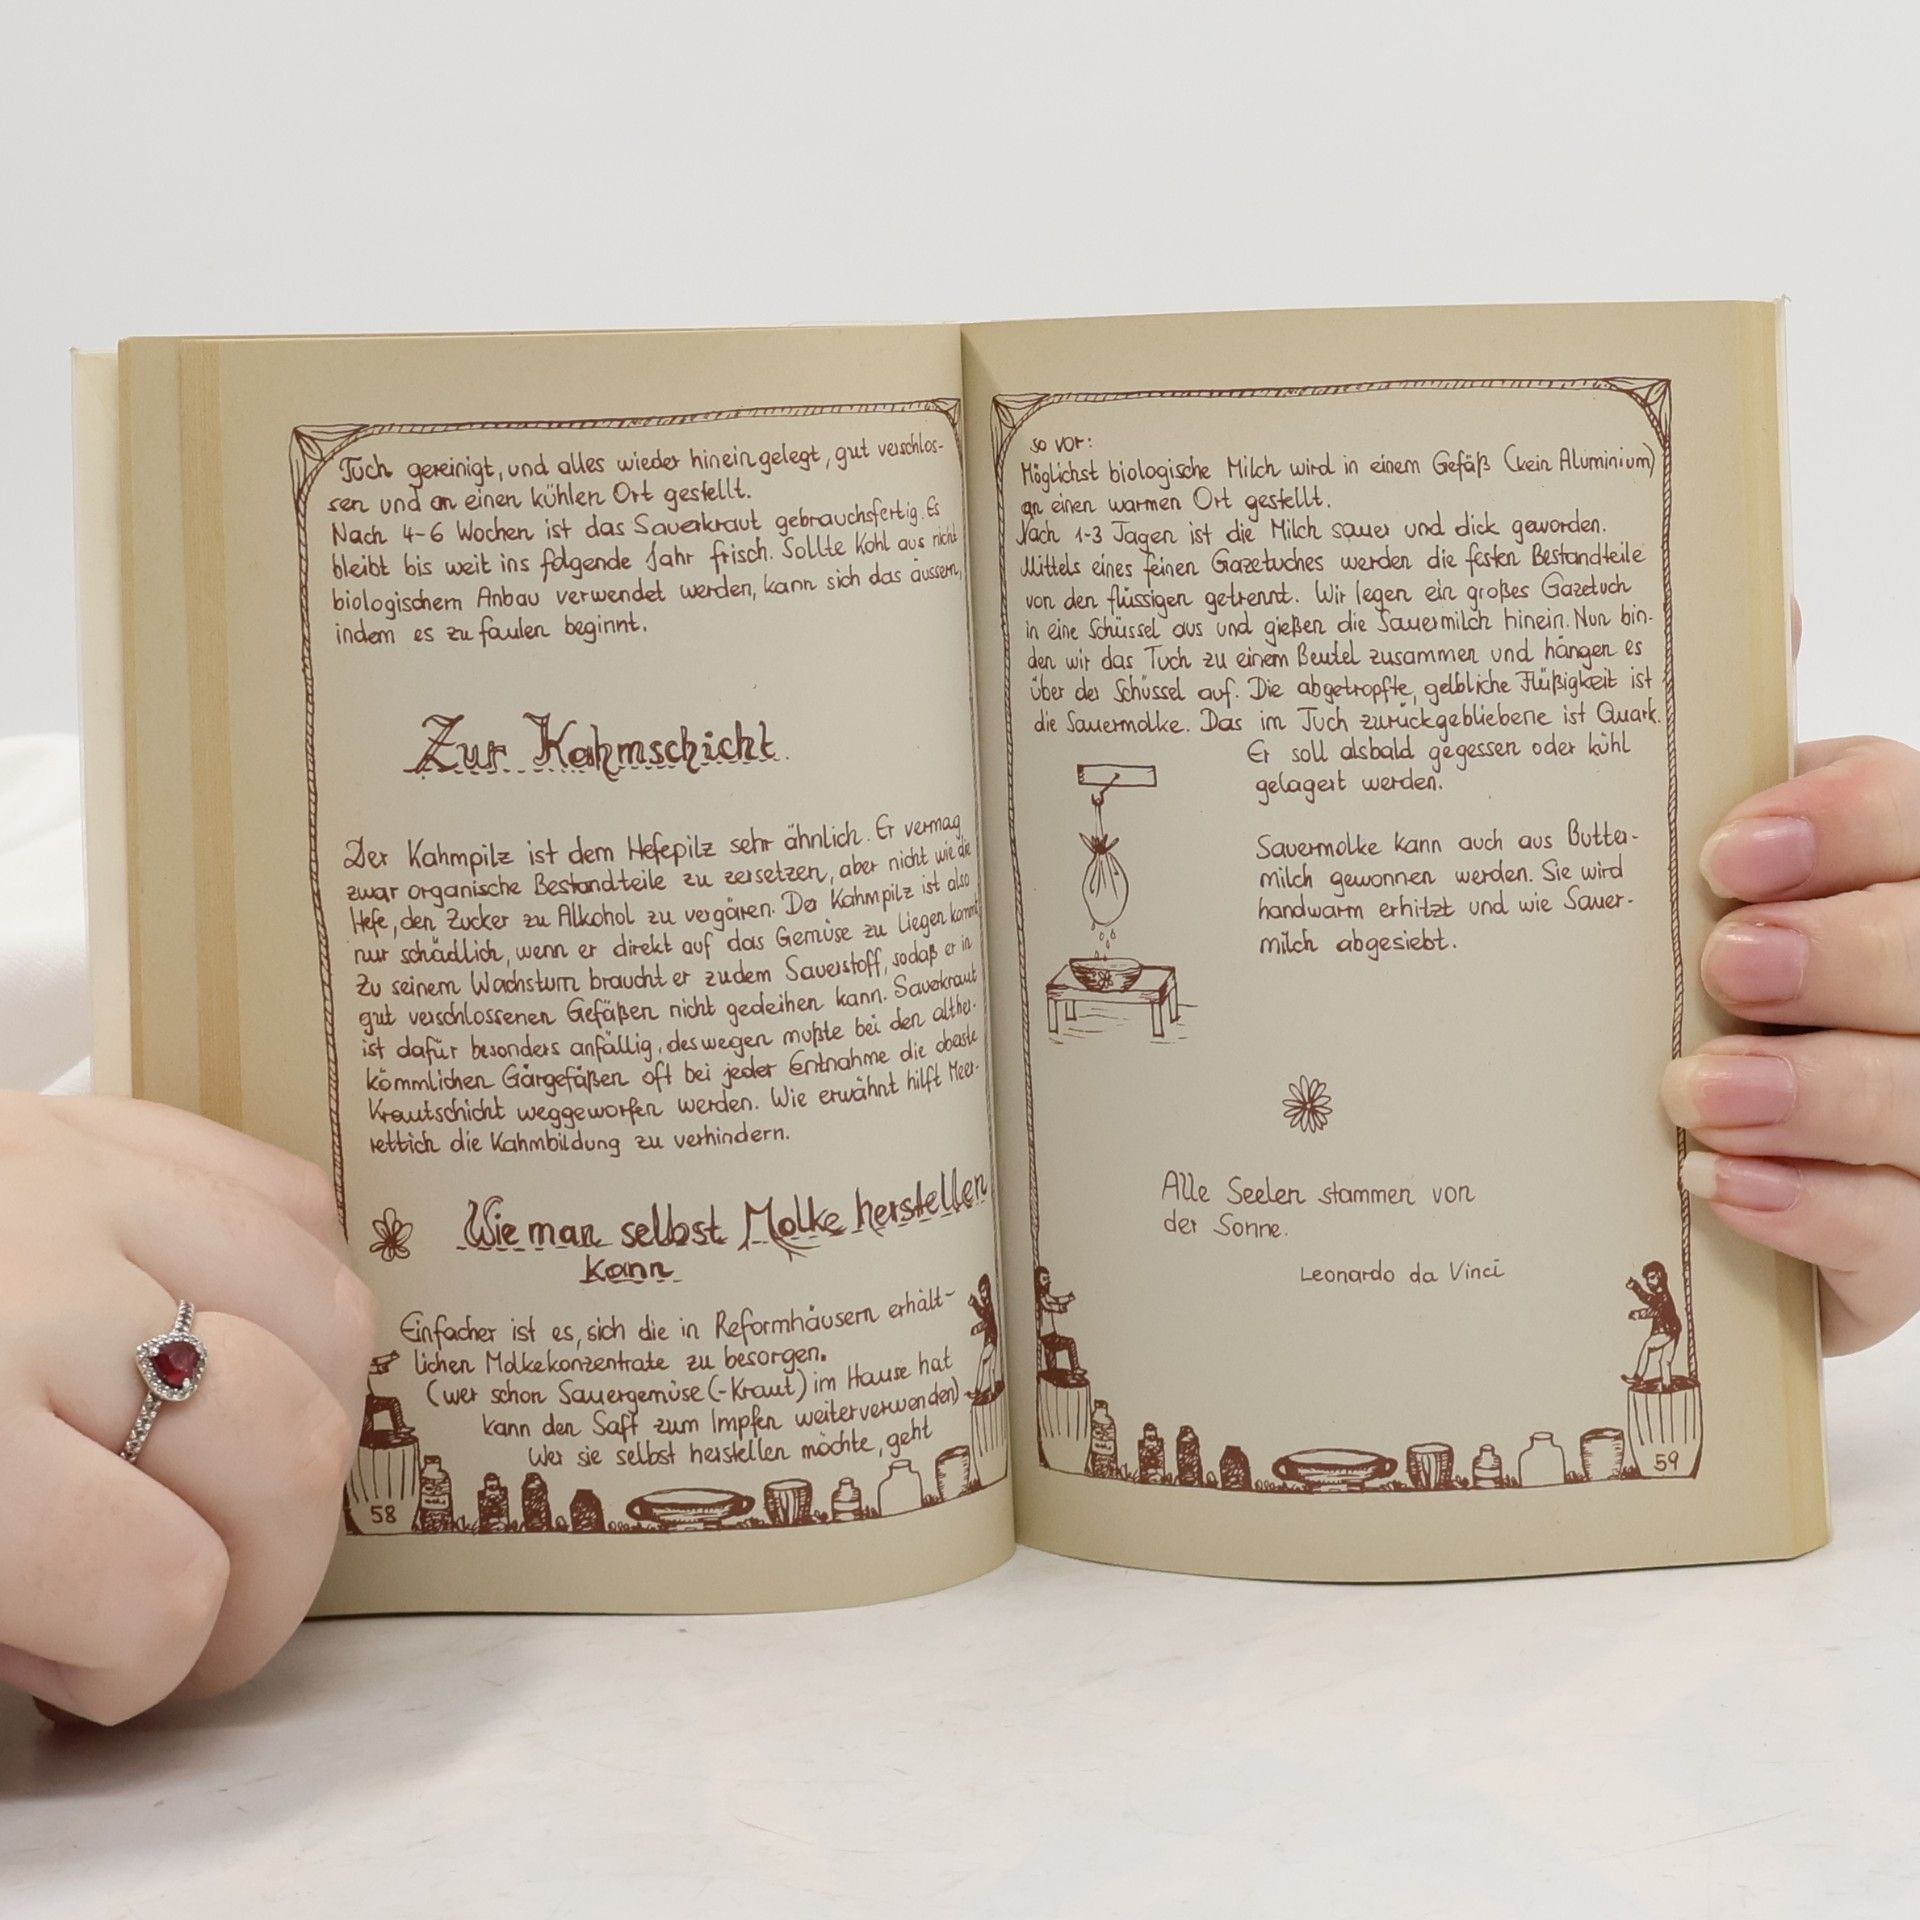 Tuch gereinigt, und alles wieder hineingelegt, gut verschlos-
sen und an einen kühlen Ort gestellt.
Nach 4-6 Wochen ist das Sauerkraut gebrauchsfertig. Es
bleibt bis weit ins folgende Jahr frisch. Sollte Kohl aus nicht
biologischem Anbau verwendet werden, kann sich das äussern,
indem es zu faulen beginnt.
Zur Kahmschicht
Der Kahmpilz ist dem Hefepilz sehr ähnlich. Er vermag
zwar organische Bestandteile zu zersetzen, aber nicht wie die
Hefe, den Zucker zu Alkohol zu vergären. Der Kahmpilz ist also
nur schädlich, wenn er direkt auf das Gemüse zu liegen kommt
Zu seinem Wachstum braucht er zudem Sauerstoff, sodaß er in
gut verschlossenen Gefäßen nicht gedeihen kann. Sauerkraut
ist dafür besonders anfällig, deswegen mußte bei den alther-
kömmlichen Gärgefäßen oft bei jeder Entnahme die oberste
Krautschicht weggeworfen werden. Wie erwähnt hilft Meer-
rettich die Kahmbildung zu verhindern.
Wie man selbst Molke herstellen
kann
Einfacher ist es, sich die in Reformhäusern erhält-
lichen Molkekonzentrate zu besorgen.
(wer schon Sauergemüse (-Kraut) im Hause hat
kann den Saft zum Impfen weiterverwenden)
Wer sie selbst herstellen möchte, geht
58
so vor:
Möglichst biologische Milch wird in einem Gefäß (kein Aluminium)
an einen warmen Ort gestellt.
Nach 1-3 Tagen ist die Milch sauer und dick geworden.
Mittels eines feinen Gazetuches werden die festen Bestandteile
von den flüssigen getrennt. Wir legen ein großes Gazetuch
in eine Schüssel aus und gießen die Sauermilch hinein. Nun bin-
den wir das Tuch zu einem Beutel zusammen und hängen es
über der Schüssel auf. Die abgetropfte, gelbliche Flüßigkeit ist
die Sauermolke. Das im Tuch zurückgebliebene ist Quark.
Er soll alsbald gegessen oder kühl
gelagert werden.
Sauermolke kann auch aus Butter-
milch gewonnen werden. Sie wird
handwarm erhitzt und wie Sauer-
milch abgesiebt.
Alle Seelen stammen von
der Sonne.
Leonardo da Vinci
59